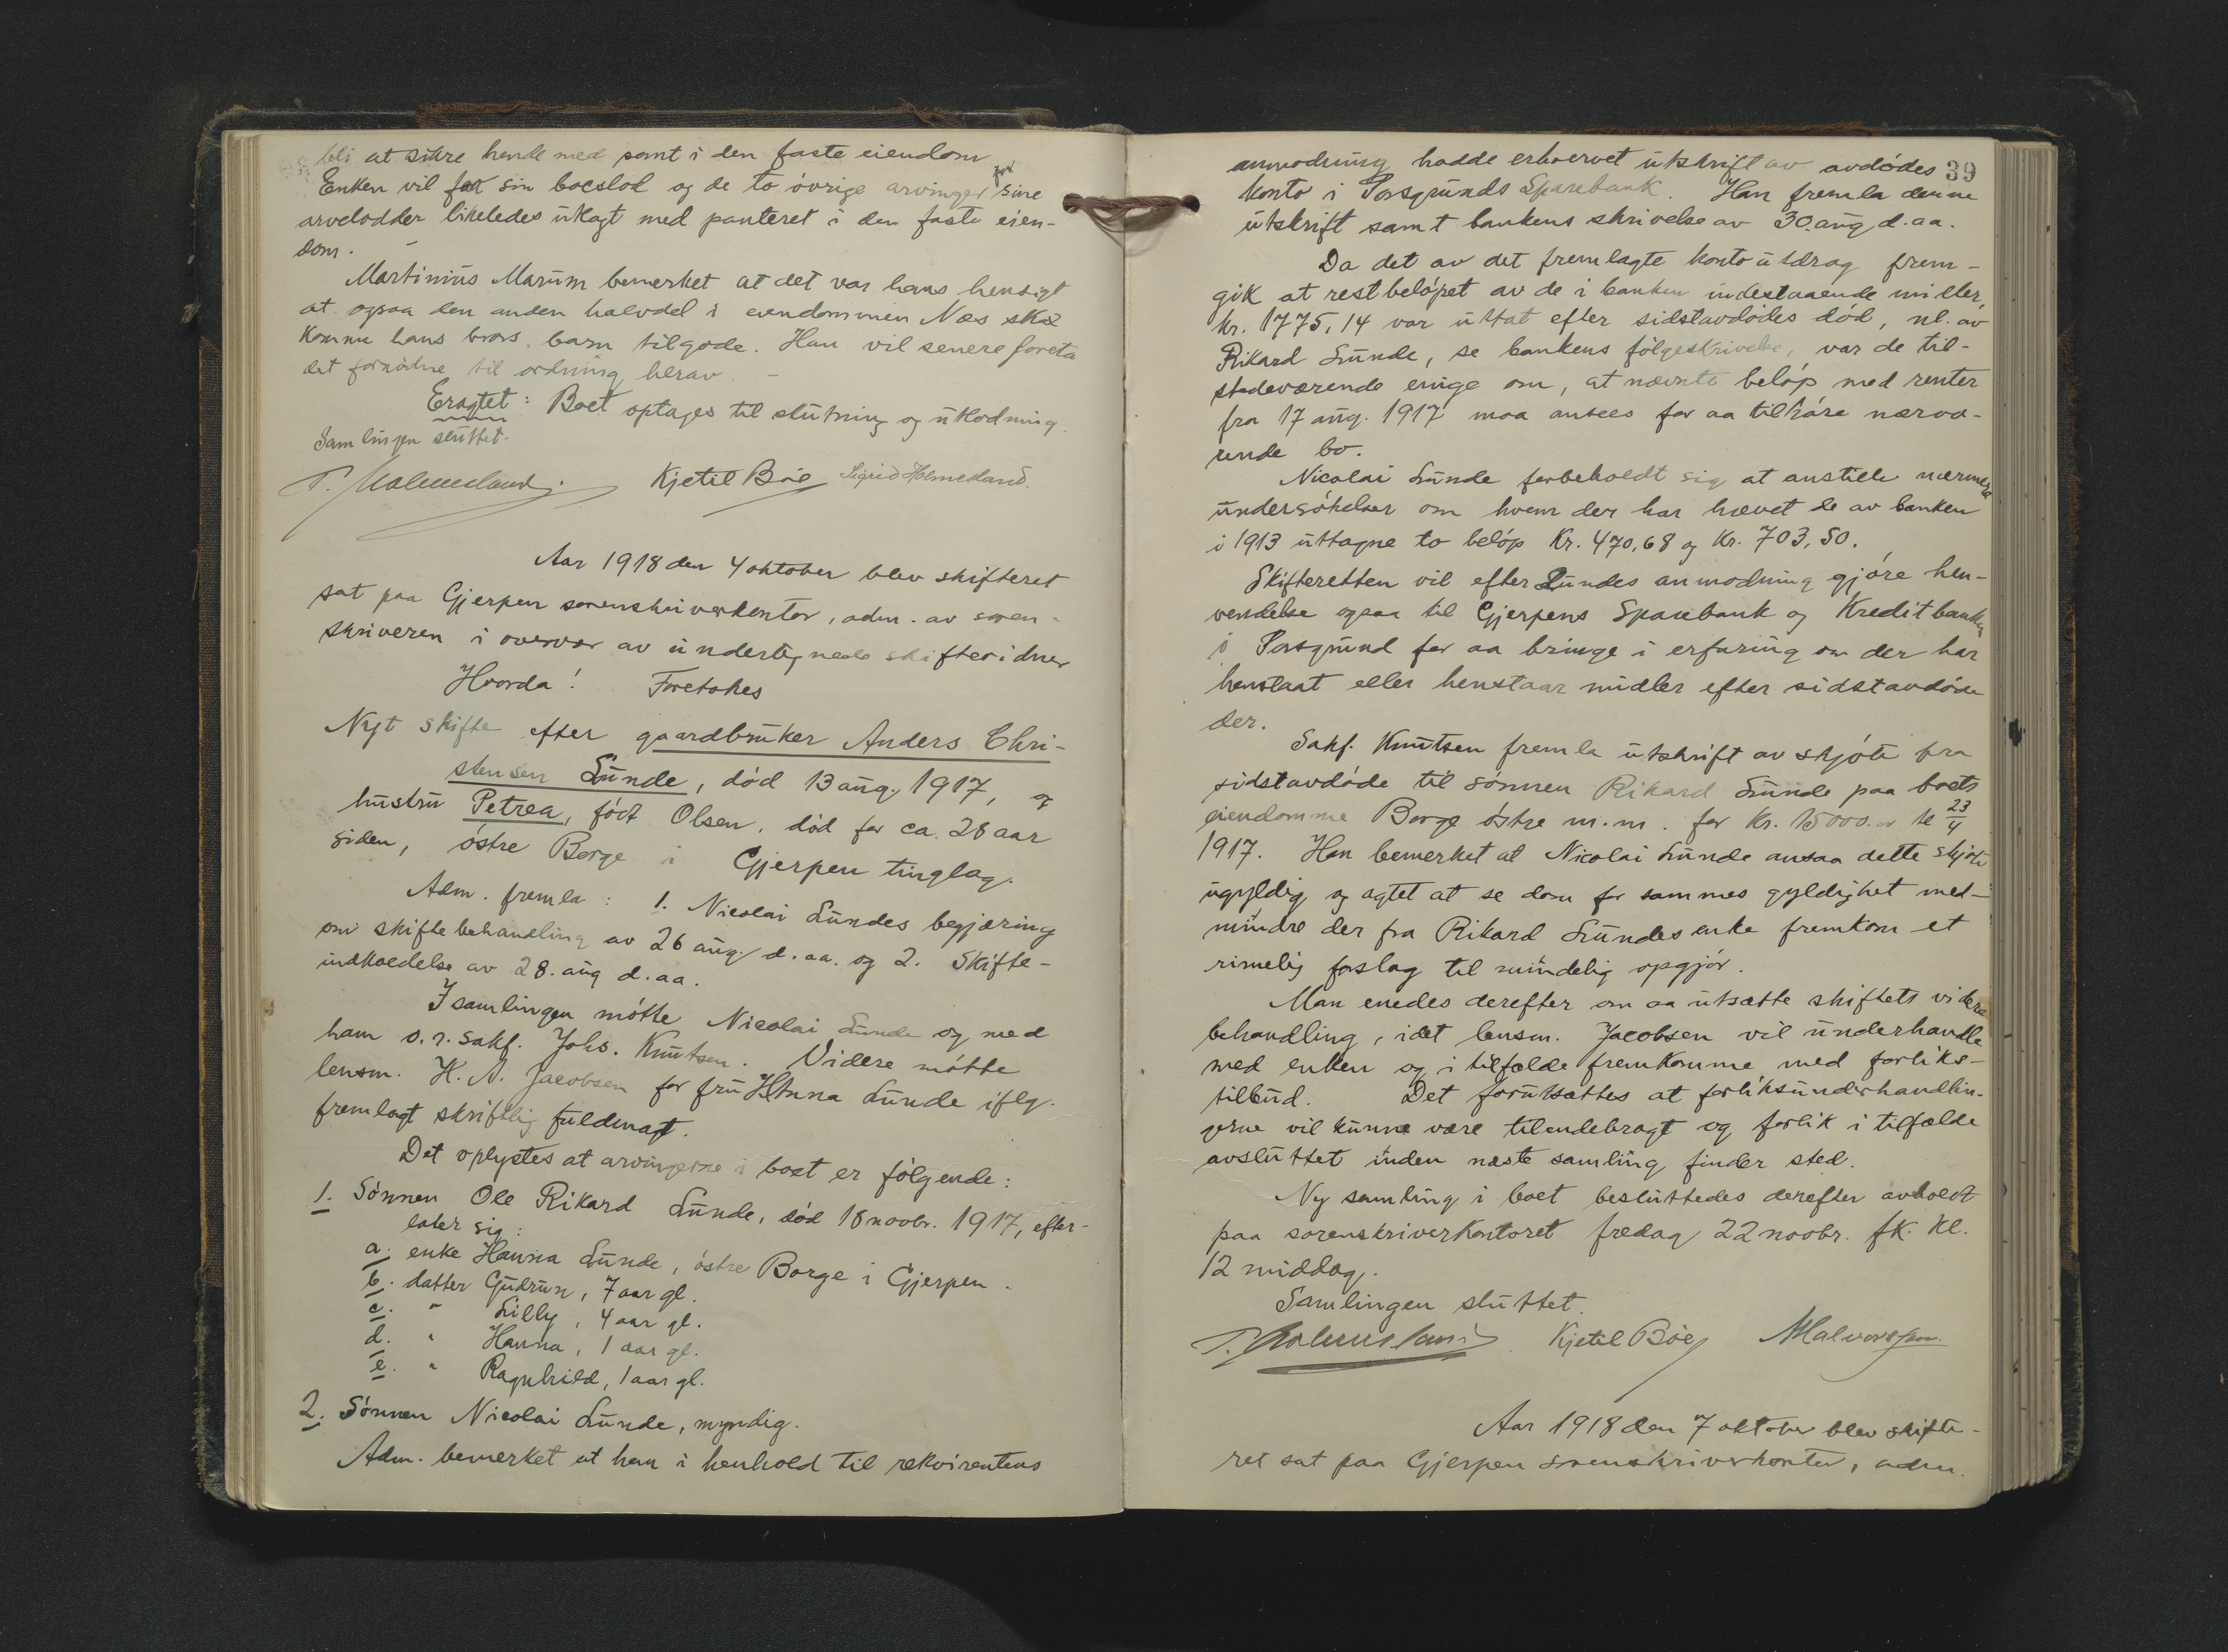 bli at sikre hende med pant i den faste eiendom
Enken vil faa sin boeslod og de to øvrige arvinger for sine
arvelodder likeledes utlagt med panteret i den faste eien-
dom.
Martinius Marum bemerket at det var hans hensigt
at ogsaa den anden halvdel i eiendommen Næs skal
komme hans brors barn tilgode. Han vil senere foreta
det fornødne til ordning herav. -
Eragtet: Boet optages til slutning og utlodning.
Samlingen sluttet.
T. Holmesland. Kjetil Bøe Sigrid Holmesland.
Aar 1918 den 4 oktober blev skifteret
sat paa Gjerpen sorenskriverkontor, adm. av soren-
skriveren i overvær av undertegnede skiftevidner
Hvorda! Foretokes
Nyt skifte efter gaardbruker Anders Chri-
stensen Lunde, død 13 aug. 1917, og
hustru Petrea, født Olsen, død for ca. 28 aar
siden, østre Borge i Gjerpen tinglag.
Adm. fremla: 1. Nicolai Lundes begjæring
om skiftebehandling av 26 aug. d. aa. og 2. Skifte-
indkaldelse av 28. aug d. aa.
I samlingen møtte Nicolai Lunde og med
ham o. r. sakf. Johs. Knutsen. Videre møtte
lensm. H. A. Jacobsen for fru Hanna Lunde iflg.
fremlagt skriftlig fuldmagt.
Det oplystes at arvingerne i boet er følgende:
1. Sønnen Ole Rikard Lunde, død 18 novbr. 1917, efter-
later sig:
a. enke Hanna Lunde, østre Borge i Gjerpen.
b. datter Gudrun, 7 aar gl.
c. " Lilly, 4 aar gl.
d. " Hanna, 1 aar gl.
e. " Ragnhild, 1 aar gl.
2. Sønnen Nicolai Lunde, myndig.
Adm. bemerket at han i henhold til rekvirentens
39
anmodning hadde erhvervet utskrift av avdødes
konto i Porsgrunds Sparebank. Han fremla denne
utskrift samt bankens skrivelse av 30. aug d. aa.
Da det av det fremlagte kontoutdrag frem-
gik at restbeløpet av de i banken indestaaende midler,
kr. 1775,14 var uttat efter sidstavdødes død, nl. av
Rikard Lunde, se bankens følgeskrivelse, var de til-
stedeværende enige om, at nævnte beløp med renter
fra 17 aug. 1917 maa ansees for aa tilhøre nærvæ-
rende bo.
Nicolai Lunde forbeholdt sig at anstille nærmere
undersøkelser om hvem der har hævet de av banken
i 1913 uttagne to beløp Kr. 470,68 og Kr. 703,50.
Skifteretten vil efter Lundes anmodning gjøre hen-
vendelse ogsaa til Gjerpens Sparebank og Kreditbanken
i Porsgrund for aa bringe i erfaring om der har
henstaat eller henstaar midler efter sidstavdøde
der.
Sakf. Knutsen fremla utskrift av skjøte fra
sidstavdøde til sønnen Rikard Lunde paa boets
eiendomme Borge østre m.m. for kr. 15000.
23/4
1917. Han bemerket at Nicolai Lunde ansaa dette skjøte
ugyldig og agtet at se dom for sammes gyldighet med-
mindre der fra Rikard Lundes enke fremkom et
rimelig forslag til mindelig opgjør.
Man enedes derefter om aa utsætte skiftets videre
behandling, idet lensm. Jacobsen vil underhandle
med enken og i tilfælde fremkomme med forliks-
tilbud. Det forutsættes at forliksunderhandlin-
gerne vil kunne være tilendebragt og forlik i tilfælde
avsluttet inden næste samling finder sted.
Ny samling i boet besluttedes derefter avholdt
paa sorenskriverkontoret fredag 22 novbr. fk. kl.
12 middag.
Samlingen sluttet.
T. Holmesland Kjetil Bøe AHalvorsen
Aar 1918 den 7 oktober blev skifte-
ret sat paa Gjerpen sorenskriverkontor, adm.